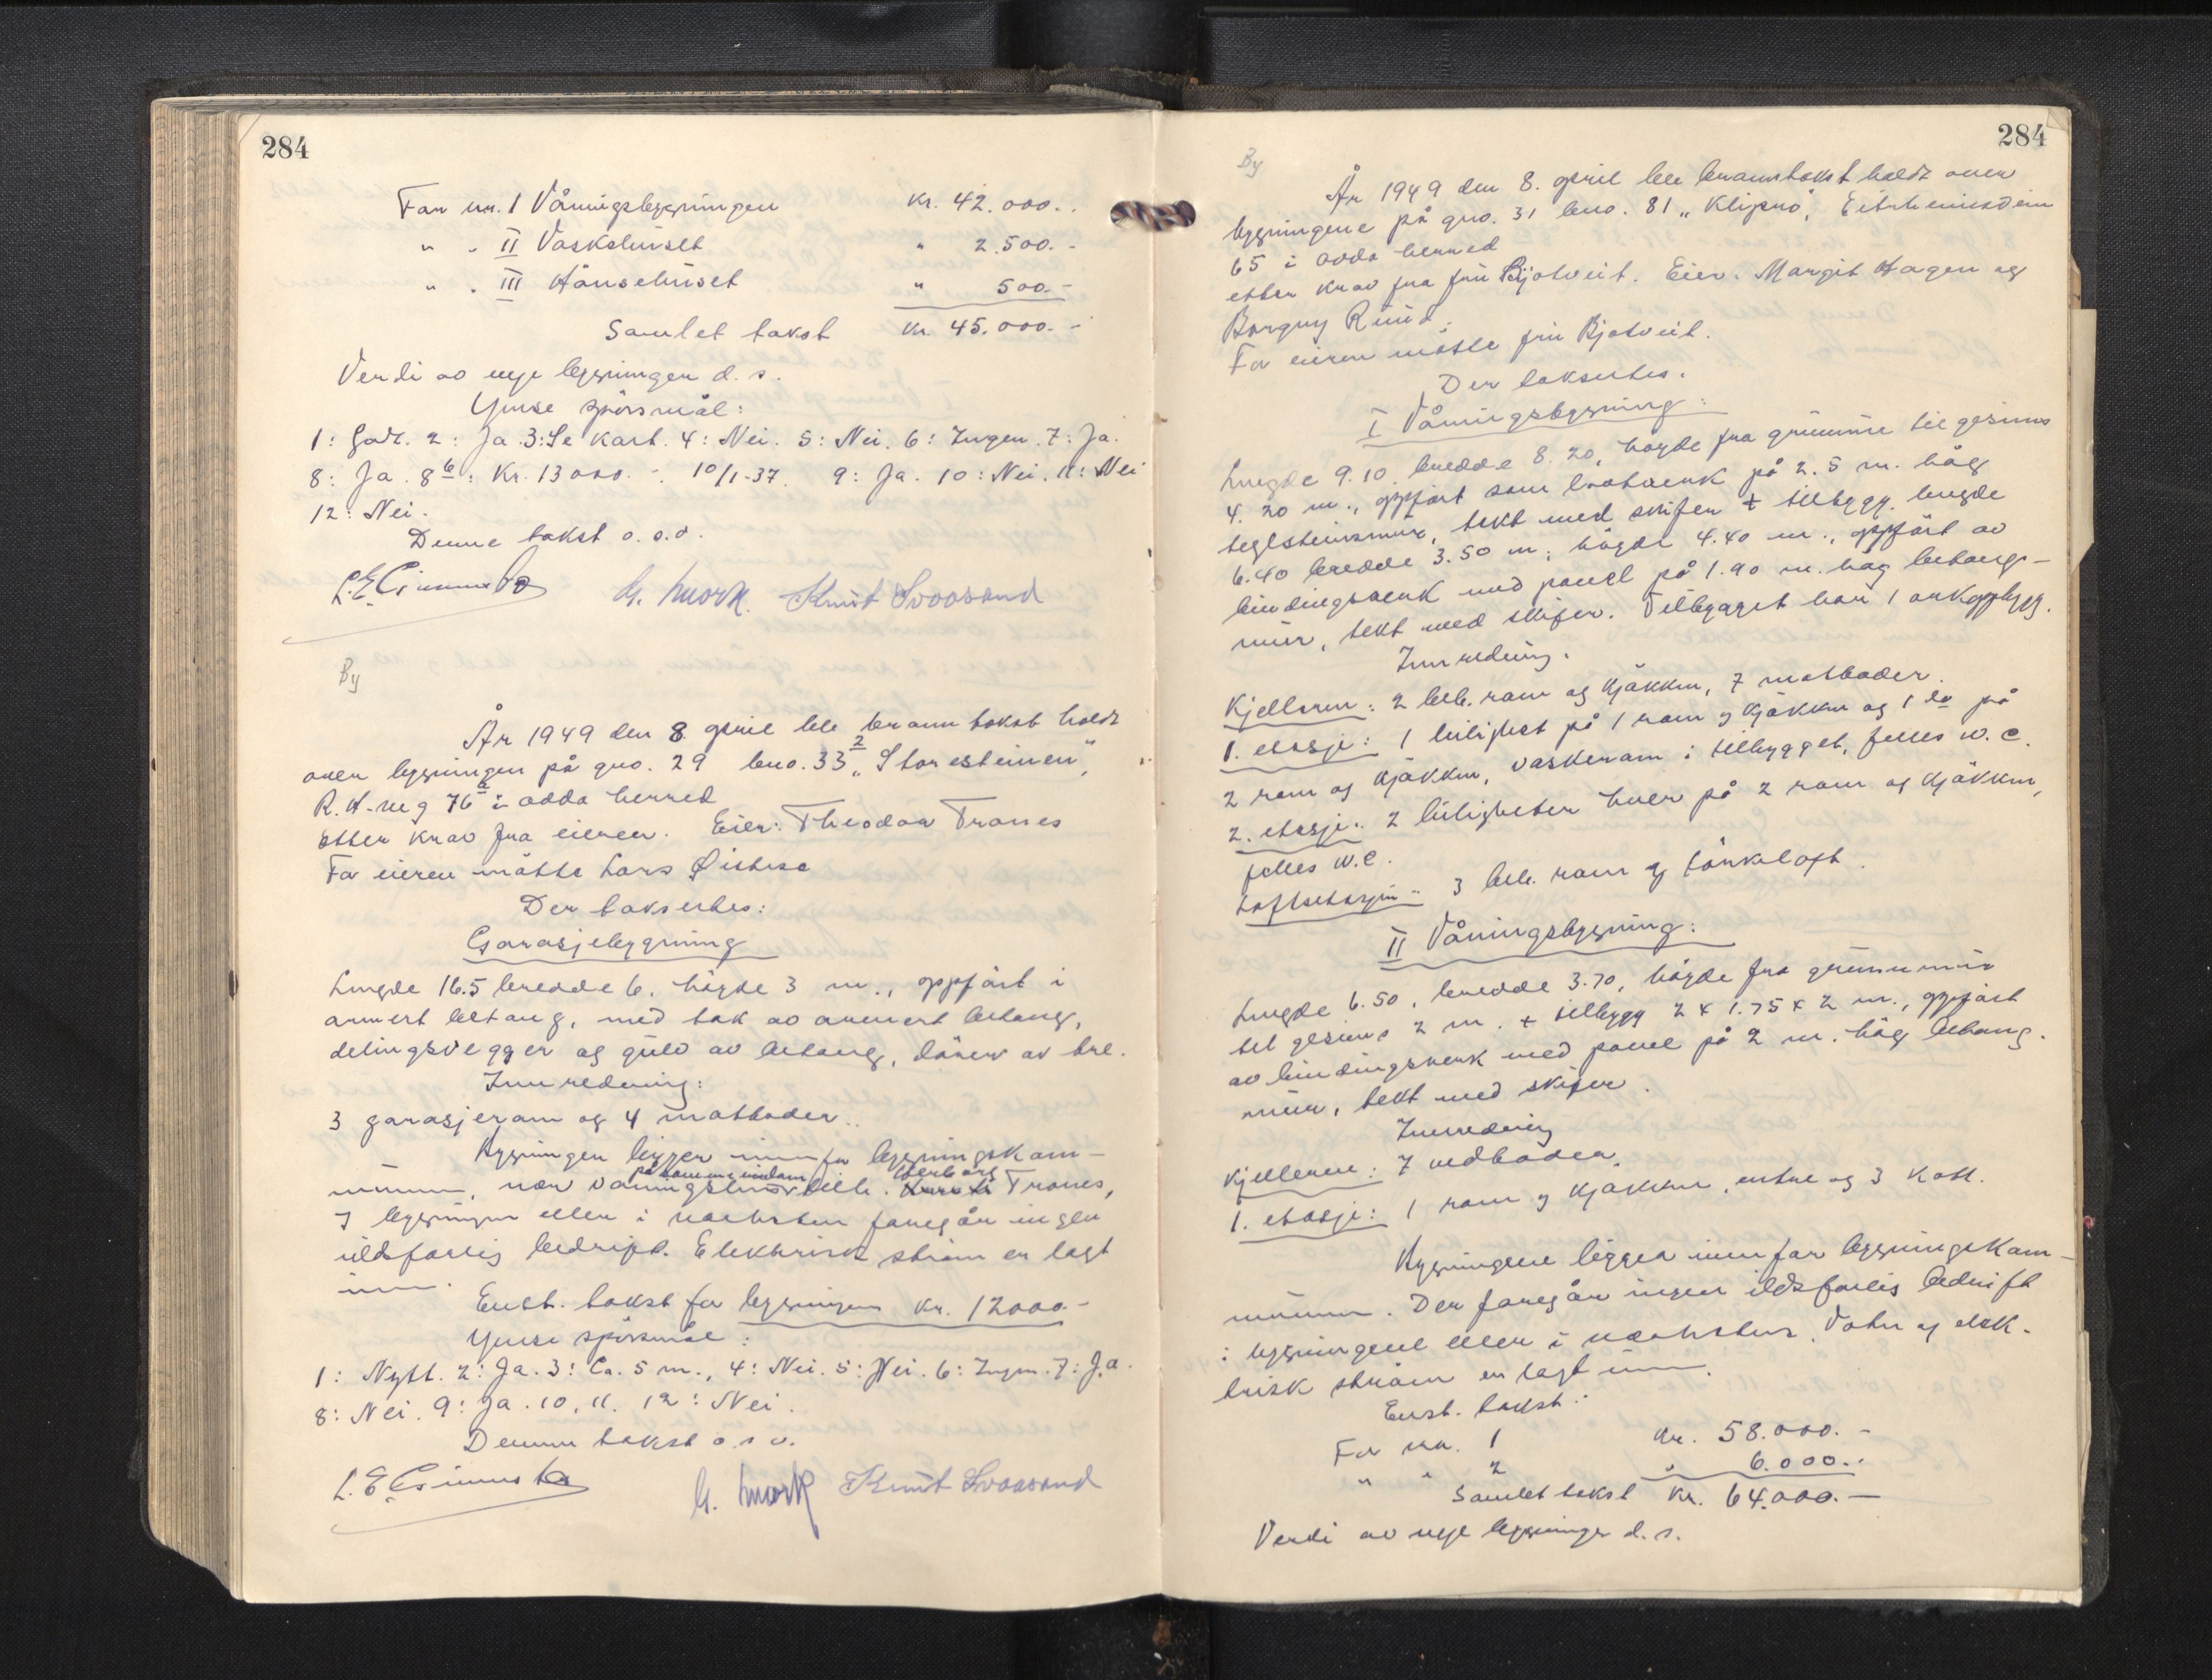 284
For nr. I Våningsbygningen Kr. 42.000.-
" " II Vaskehuset " 2.500.-
" " III Hönsehuset " 500.-
Samlet takst Kr. 45.000.-
Verdi av nye bygninger d. s.
Ymse spörsmål:
1: Godt. 2: Ja. 3: Se kart. 4: Nei. 5: Nei. 6: Ingen. 7: Ja.
8: Ja. 8 b: Kr. 13000.- 10/1-37. 9: Ja. 10: Nei. 11: Nei
12: Nei.
Denne takst o. s. v.
G. Mork Knut Svoosand
By
År 1949 den 8. april ble branntakst holdt
over bygningen på gno. 29 bno. 33 2 "Storesteinen",
R. H-veg 76 a i Odda herred
etter krav fra eieren. Eier: Theodor Trones
For eieren mötte Lars Øistese
Der taksertes:
Garasjebygning
Lengde 16.5 bredde 6. höyde 3 m., oppfört i
armert betong, med tak av armert betong,
delingsvegger og gulv av betong, dörer av tre.
Innredning:
3 garasjerom og 4 matboder.
Bygningen ligger innenfor bygningskom-
munen, nær våningshus på samme eiendom tilh. Trones,
I bygningen eller i nærheten foregår ingen
ildsfarlig bedrift. Elektrisk ström er lagt
inn.
Enst. takst for bygningen Kr. 12000.-
Ymse spörsmål:
1: Nytt. 2: Ja. 3: Ca. 5 m., 4: Nei. 5: Nei. 6: Ingen. 7: Ja.
8: Nei. 9: Ja. 10, 11. 12: Nei.
Denne takst o. s. v.
G. Mork Knut Svoosand
284
By
År 1949 den 8. april ble branntakst holdt over
bygningene på gno. 31 bno. 81 "Klipno", Eitrheimsveien
65 i Odda herred
etter krav fra fru Bjotveit. Eier. Margit Hagen og
Borgny Ruud.
For eieren mötte fru Bjotveit.
Der taksertes.
I Våningsbygning:
Lengde 9.10 bredde 8.20, höyde fra grunnmur til gesims
4.20 m., oppfört som tretverk på 2.5 m. höy
teglsteinsmur, tekt med skifer + tilbygg. lengde
6.40 bredde 3.50 m; höyde 4.40 m., oppfört av
bindingsverk med panel på 1.90 m. höy betong-
mur, tekt med skifer. Tilbygget har 1 arkoppbygg.
Innredning.
Kjelleren: 2 beb. rom og kjökken, 7 matboder.
1. etasje: 1 leilighet på 1 rom og kjökken og 1 do på
2 rom og kjökken, vaskerom i tilbygget, felles w. c.
2. etasje: 2 leiligheter hver på 2 rom og kjökken,
felles w. c.
Loftsetasjen: 3 beb. rom og törkeloft.
II Våningsbygning:
Lengde 6.50, bredde 3.70, höyde fra grunnmur
til gesims 2 m. + tilbygg 2 x 1.75 x 2 m., oppfört
av bindingsverk med panel på 2 m. höy betong-
mur, tekt med skifer.
Innredning
Kjelleren: 7 vedboder.
1. etasje: 1 rom og kjökken, entre og 3 kott.
Bygningene ligger innenfor bygningskom-
munen. Der foregår ingen ildsfarlig bedrift
i bygningene eller i nærheten. Vatn og elek-
trisk ström er lagt inn.
Enst. takst:
For nr. 1 Kr. 58.000.-
" " 2 " 6.000.-
Samlet takst Kr. 64.000.-
Verdi av nye bygninger d. s.